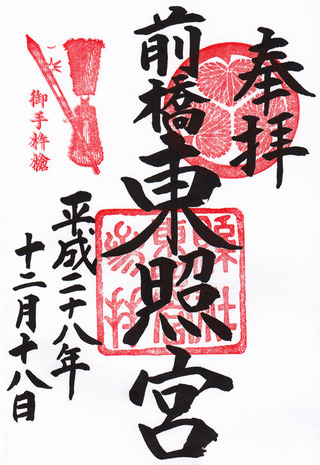 奉拝
前橋東照宮
平成二十八年
十二月十八日
御手杵槍